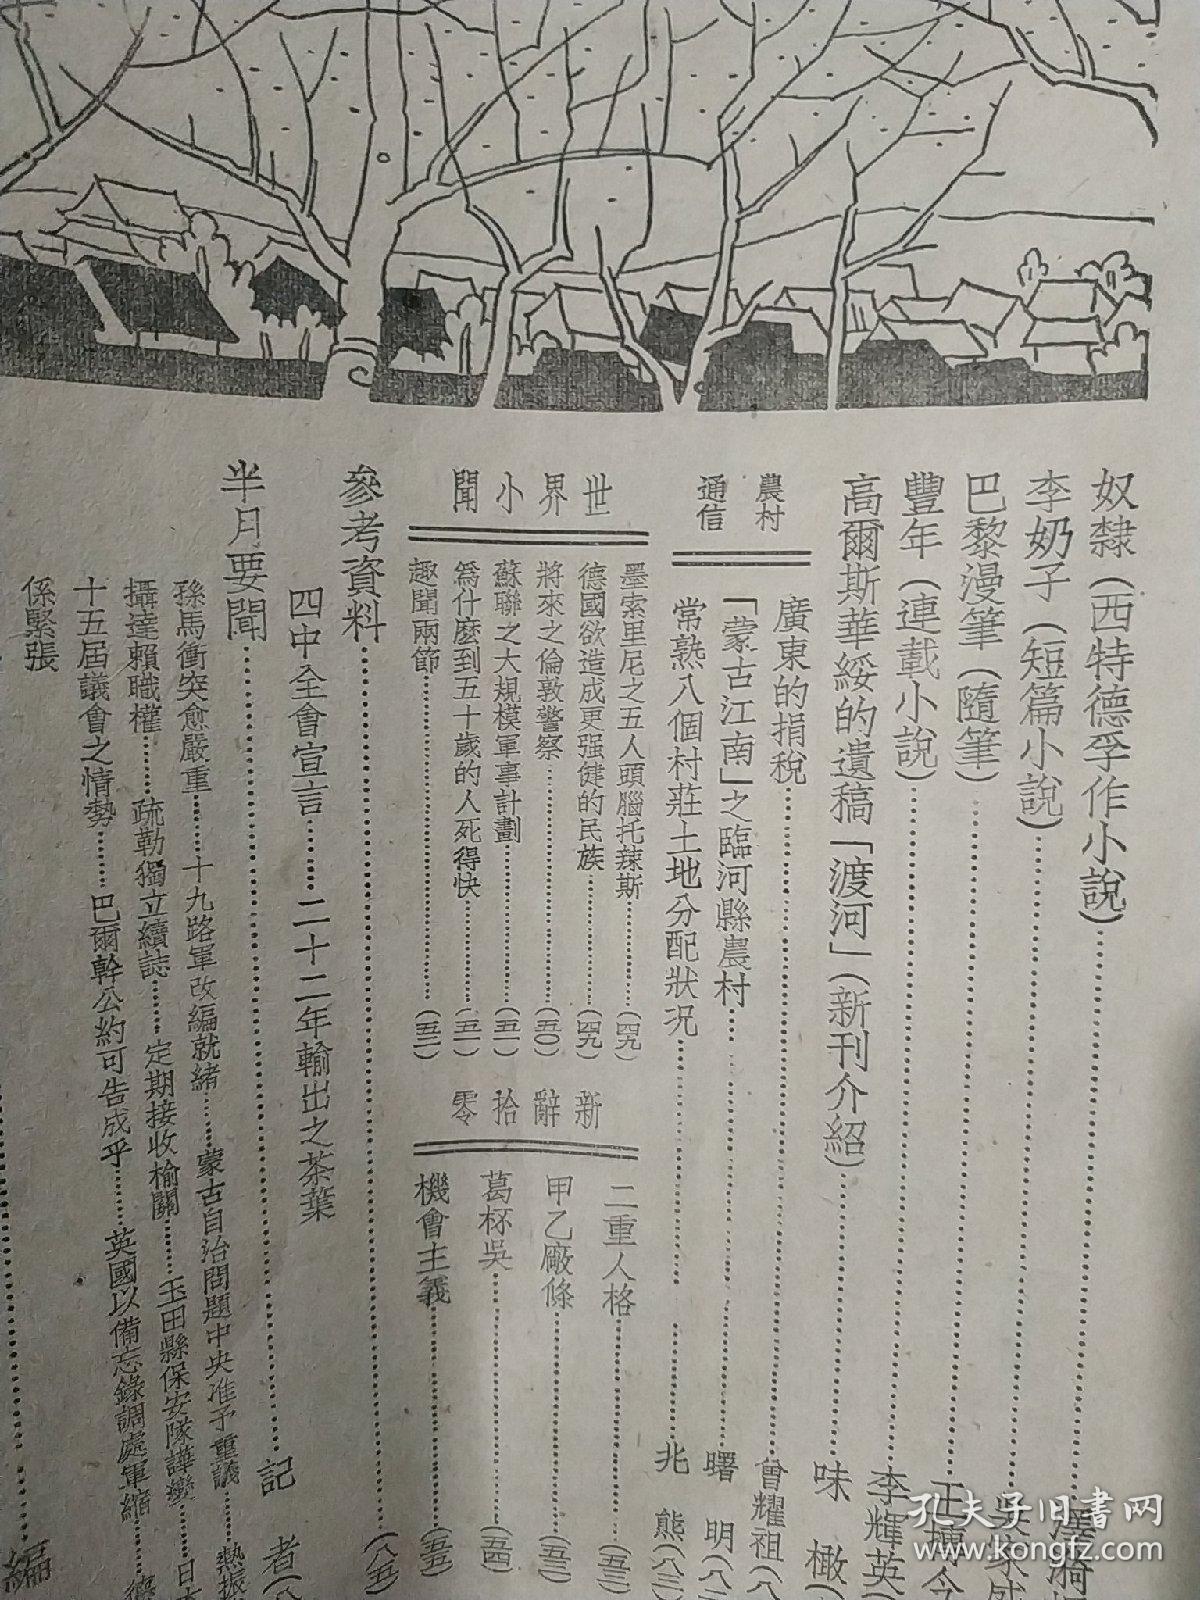 奴隸（西特德孚作小說）
李奶子（短篇小說）
巴黎漫筆（隨筆）
豐年（連載小說） 李輝英
高爾斯華綏的遺稿「渡河」（新刊介紹） 味橄
農村通信
廣東的捐稅 曾耀祖（八
「蒙古江南」之臨河縣農村 曙明（八
常熟八個村莊土地分配狀況 兆熊（八
世界小聞
墨索里尼之五人頭腦托辣斯（四九）
德國欲造成更强健的民族（四九）
將來之倫敦警察（五〇）
蘇聯之大規模軍事計劃（五一）
為什麼到五十歲的人死得快（五一）
趣聞兩節（五二）
新辭拾零
二重人格（五三）
甲乙廠條（五三）
葛杯吳（五四）
機會主義（五五）
參考資料（八五）
四中全會宣言……二十二年輸出之茶葉
半月要聞 記者（八
孫馬衝突愈嚴重……十九路軍改編就緒……蒙古自治問題中央准予重議……熱振
攝達賴職權……疏勒獨立續誌……定期接收榆關……玉田縣保安隊譁變……日
十五屆議會之情勢……巴爾幹公約可告成乎……英國以備忘錄調處軍縮……德
係緊張
編
孔夫子旧書网
www.kongfz.com